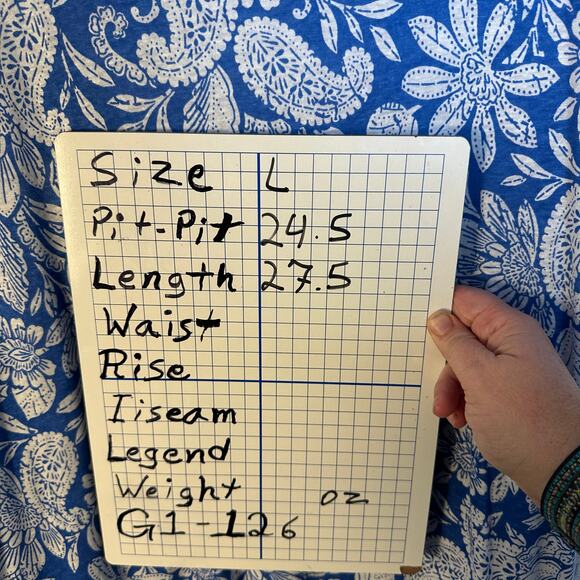 Size L
Pit-Pit 24.5
Length 27.5
Waist
Rise
Iiseam
Legend
Weight oz
G1-126